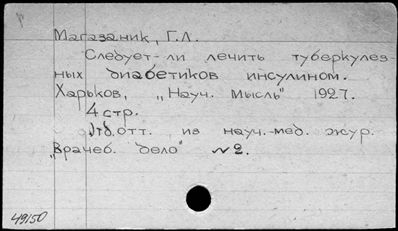 Магазаник, Г.Л.
Следует-ли лечить туберкулез-
ных диабетиков инсулином.
Харьков, „Науч. мысль" 1927.
4 стр.
Отд.отт. из науч.-мед. жур.
„Врачеб. дело" №2.
49150